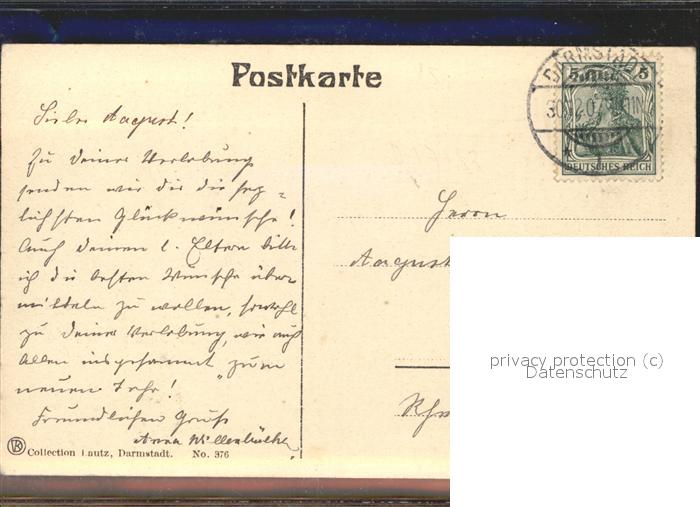 Postkarte
DARMSTADT
5 5
DEUTSCHES REICH
Lieber August!
Zu Deiner Verlobung
senden wir dir die herz=
lichsten Glückwünsche!
Auch deinen l. Eltern bitte
ich die besten Wünsche über=
mitteln zu wollen, sowohl
zu Deiner Verlobung, wie auch
Allen insgesammt "zum
neuen Jahr!"
Freundlichen Gruß
Anna
Herrn
August
privacy protection (c)
Datenschutz
Collection Lautz, Darmstadt. No. 376